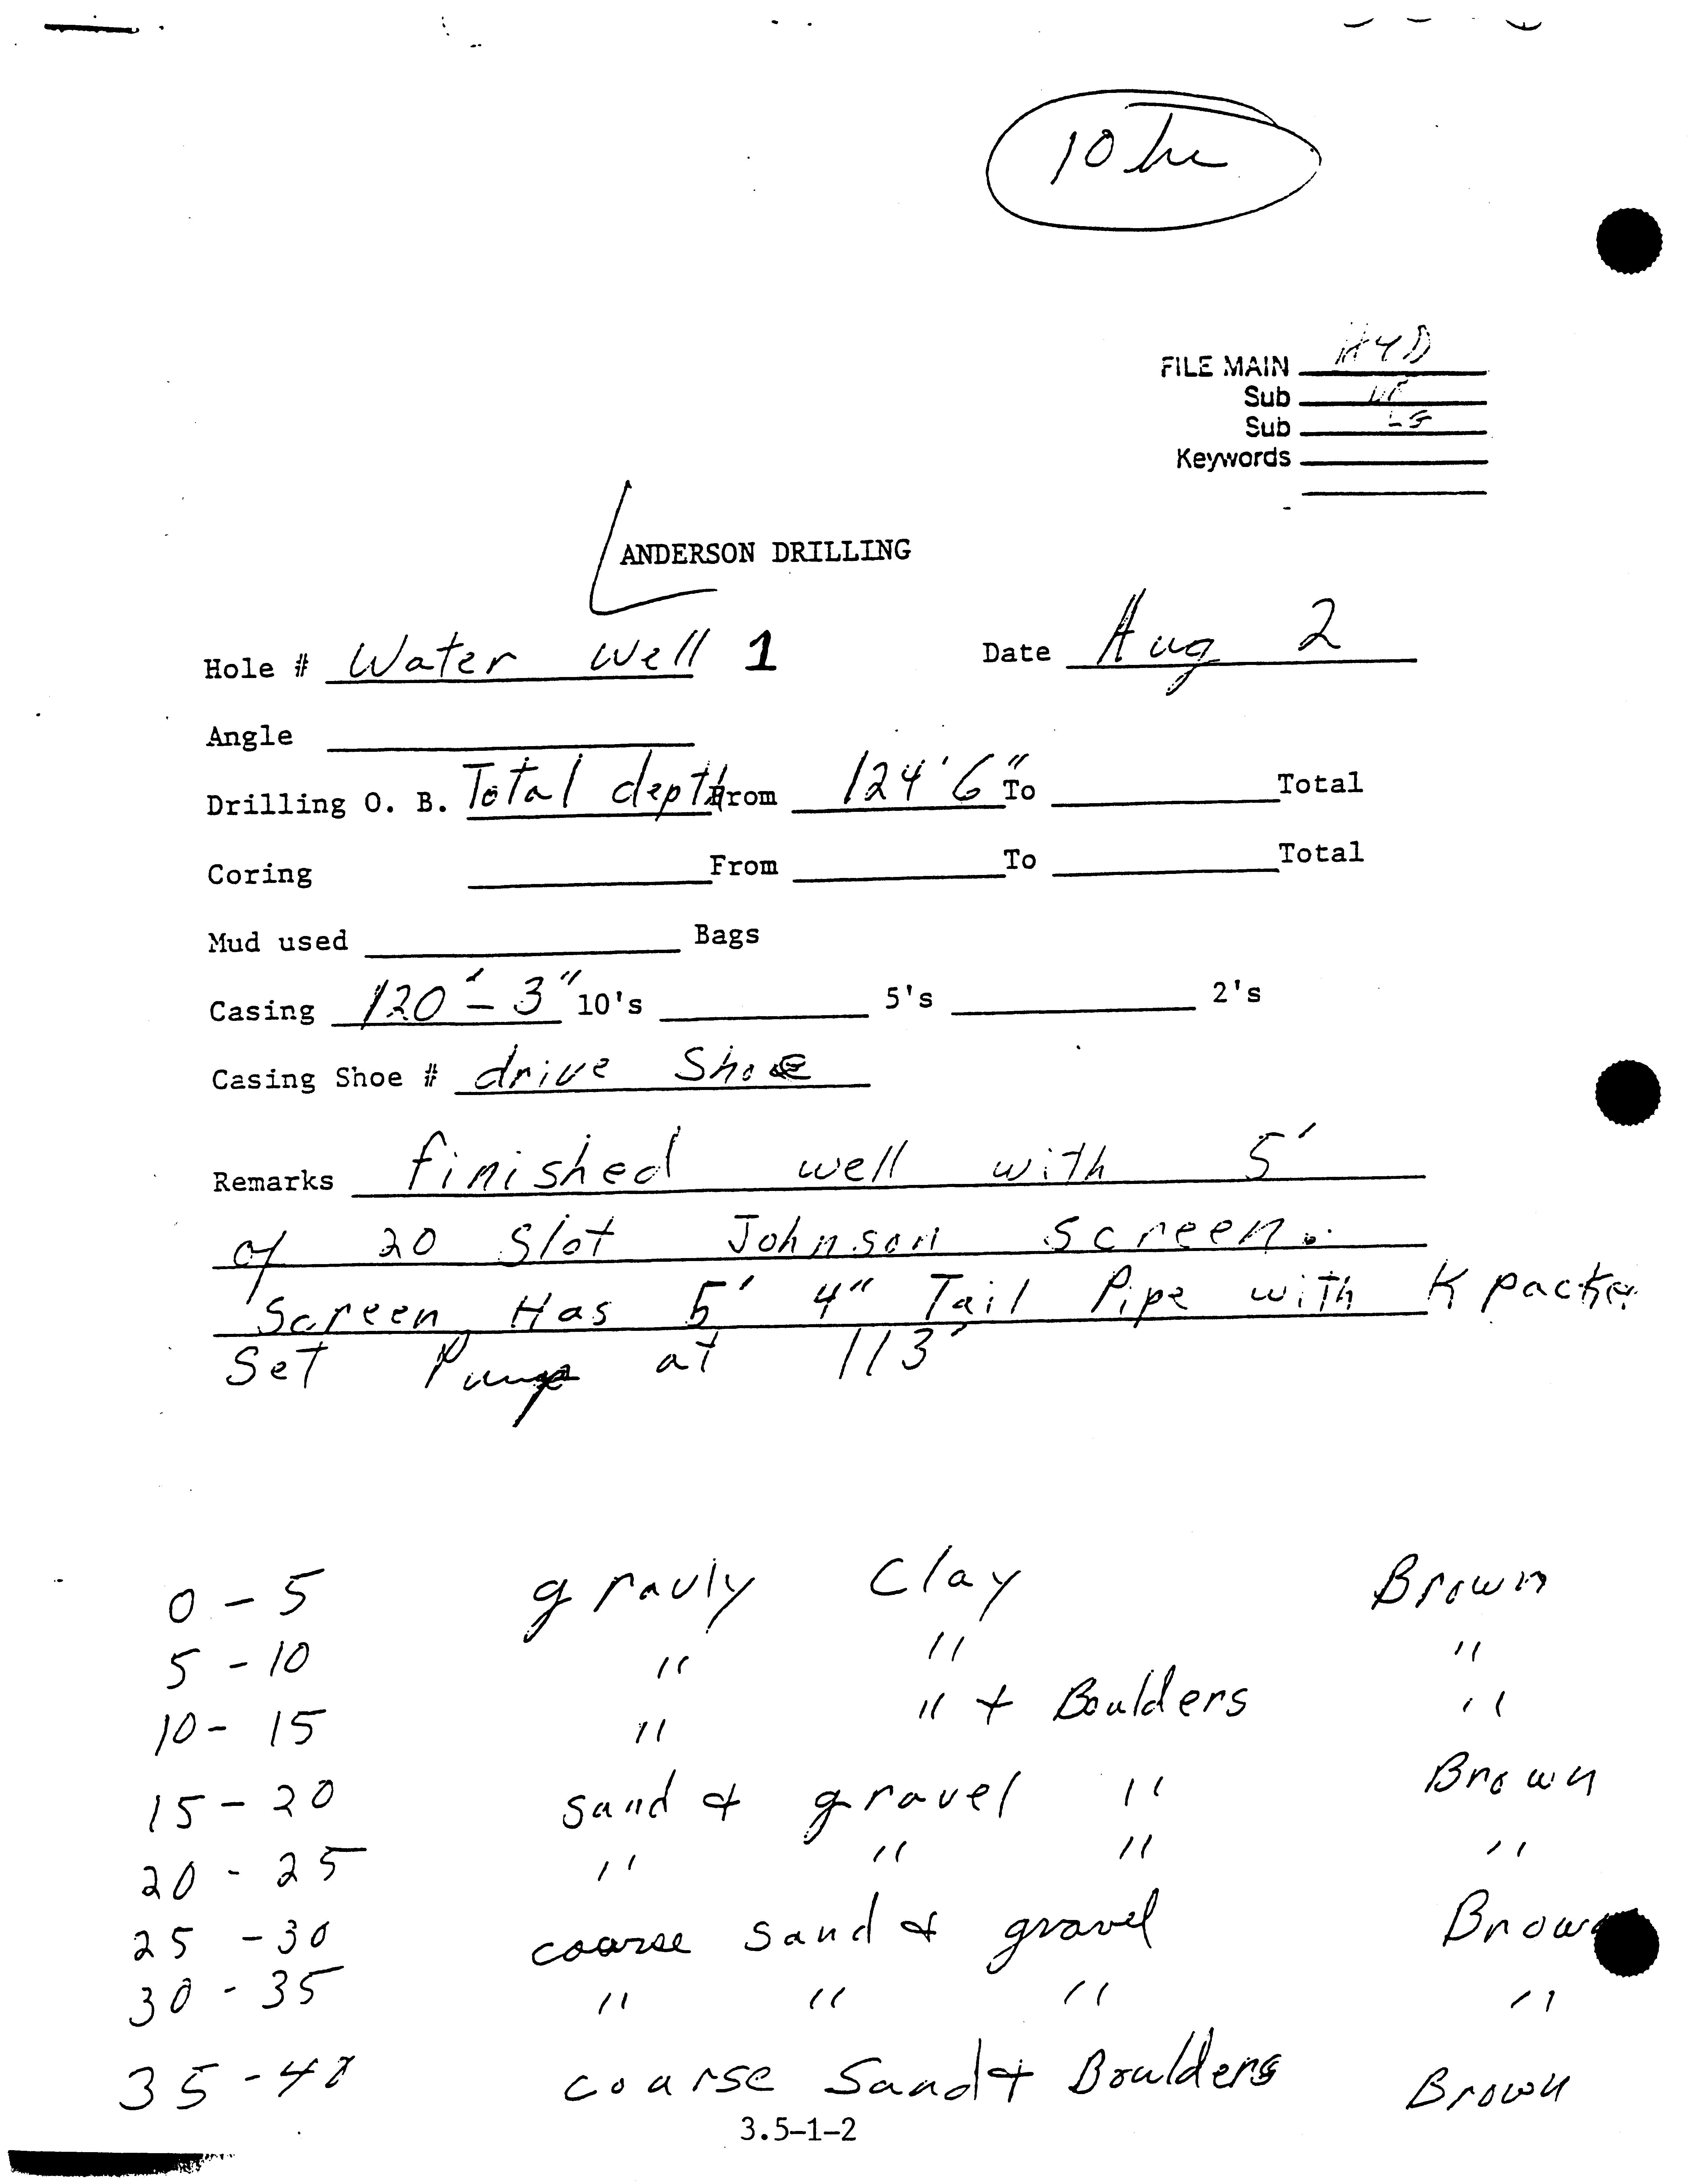 10 hr
FILE MAIN HYD
Sub
Sub
Keywords
ANDERSON DRILLING
Hole # Water Well 1 Date Aug 2
Angle
Drilling O. B. Total depth From 124' 6" To Total
Coring From To Total
Mud used Bags
Casing 120' - 3" 10's 5's 2's
Casing Shoe # drive Shoe
Remarks finished well with 5'
of 20 Slot Johnson screen.
Screen Has 5' 4" Tail Pipe with K packer
Set Pump at 113'
0 - 5 grauly Clay Brown
5 - 10 " " "
10 - 15 " " + Boulders "
15 - 20 sand + gravel " Brown
20 - 25 " " " "
25 - 30 coarse sand + gravel Brown
30 - 35 " " " "
35 - 40 coarse Sand + Boulders Brown
3.5-1-2